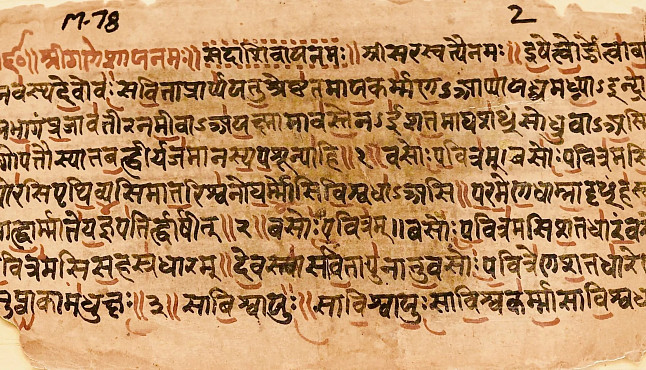 M-78 2
श्रीगणेशायनमः॥ सदाशिवायनमः॥ श्रीसरस्वत्यैनमः॥ इषेत्वोर्ज्जेत्वावा
यवस्थदेवोवः सविताप्रार्प्पयतुश्रेष्ठतमायकर्म्मणऽआप्यायध्वमघ्न्याऽइन्द्रा
यभागंप्रजावतीरनमीवाऽअयक्ष्मामावस्तेनऽईशतमाघशᳬसोध्रुवाऽअस्मि
गोपतौस्यातबह्वीर्यजमानस्यपशून्पाहि॥१॥ वसोःपवित्रम्॥ वसोःपवित्रमसि
द्यौरसिपृथिव्यसिमातरिश्वनोघर्म्मोसिविश्वधाऽअसि॥ परमेणधाम्नादृᳬहस्व
माह्वार्म्मातेयज्ञपतिर्ह्वार्षीत्॥२॥ वसोःपवित्रम्॥ वसोःपवित्रमसिशतधारंवसो
पवित्रमसिसहस्रधारम्॥ देवस्त्वासवितापुनातुवसोःपवित्रेणशतधारे
सुप्वाकामधुक्षः॥३॥ साविश्वायुः॥ साविश्वायुःसाविश्वकर्म्मासाविश्वध